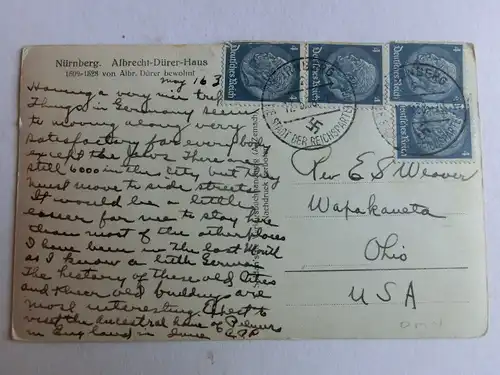 Nürnberg. Albrecht-Dürer-Haus
von Albr. Dürer bewohnt
May 16 3
Having a very nice trip
Things in Germany seem
to moving along very
satisfactory for every body
except the Jews. There are
still 6000 in the city but they
must move to side streets
It would be a little
easier for me to stay here
than most of the other places
I have been in the last Month
as I know a little German
The history of these old Cities
and their old buildings are
most interesting. Expect to
visit the ancestral home of Palmers
in England in June
Rev E S Weaver
Wapakoneta
Ohio
USA
Deutsches Reich 4
Deutsches Reich 4
Deutsches Reich 4
Deutsches Reich 4
NÜRNBERG
DIE STADT DER REICHSPARTEITAGE